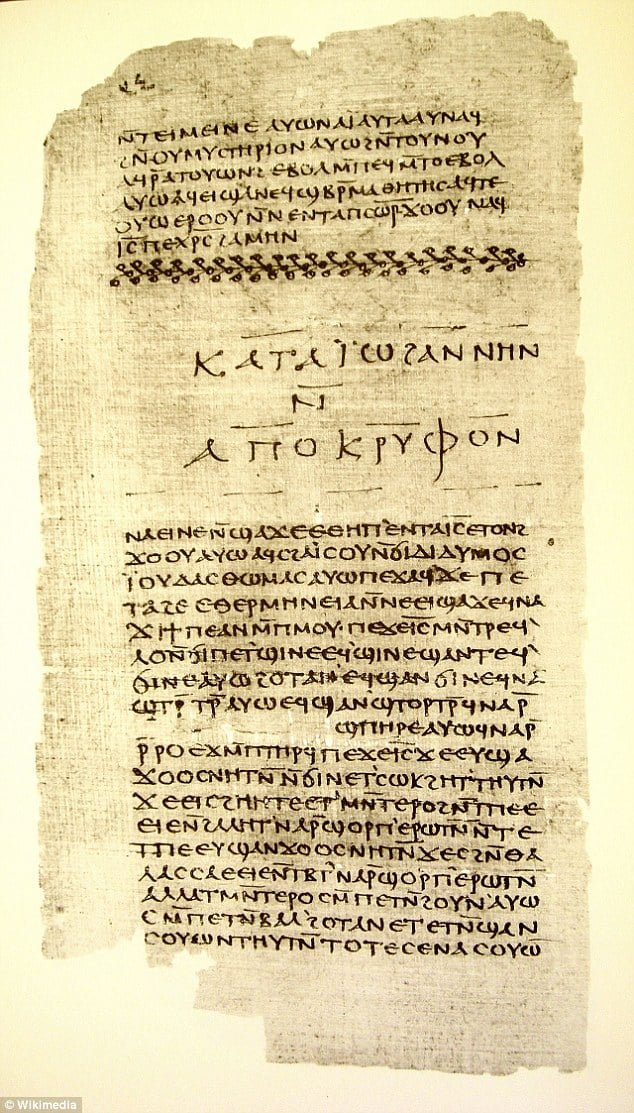 ⲛ̅ⲧⲉⲓⲙⲉⲓⲛⲉ ⲁⲩⲱ ⲛⲁⲓ̈ ⲁⲩⲧⲁⲁⲩ ⲛⲁϥ
ϩⲛ̅ⲟⲩⲙⲩⲥⲧⲏⲣⲓⲟⲛ ⲁⲩⲱ ϩⲛ̅ⲧⲟⲩⲛⲟⲩ
ⲁϥⲣ̅ⲁⲧⲟⲩⲱⲛϩ ⲉⲃⲟⲗ ⲙ̅ⲡⲉϥⲙ̅ⲧⲟ ⲉⲃⲟⲗ
ⲁⲩⲱ ⲁϥⲉⲓ ϣⲁ ⲛⲉϥϣⲃⲣ̅ⲙⲁⲑⲏⲧⲏⲥ ⲁϥⲧⲉ
ⲟⲩⲱ ⲉⲣⲟⲟⲩ ⲛ̅ⲛⲉⲛⲧⲁⲡⲥⲱ̅ⲣ̅ ϫⲟⲟⲩ ⲛⲁϥ
ⲓ̅ⲥ̅ ⲡⲉⲭ̅ⲣ̅ⲥ̅ ϩⲁⲙⲏⲛ
ⲕⲁⲧⲁ ⲓ̈ⲱϩⲁⲛⲛⲏⲛ
ⲛ̅
ⲁⲡⲟⲕⲣⲩⲫⲟⲛ
ⲛⲁⲉⲓ ⲛⲉ ⲛ̅ϣⲁϫⲉ ⲉⲑⲏⲡ ⲉⲛⲧⲁⲓ̅ⲥ̅ ⲉⲧⲟⲛϩ
ϫⲟⲟⲩ ⲁⲩⲱ ⲁϥⲥϩⲁⲓ̈ⲥⲟⲩ ⲛ̅ϭⲓ ⲇⲓⲇⲩⲙⲟⲥ
ⲓ̈ⲟⲩⲇⲁⲥ ⲑⲱⲙⲁⲥ ⲁⲩⲱ ⲡⲉϫⲁϥ ϫⲉ ⲡⲉ
ⲧⲁϩⲉ ⲉⲑⲉⲣⲙⲏⲛⲉⲓⲁ ⲛ̅ⲛⲉⲉⲓϣⲁϫⲉ ϥⲛⲁ
ϫⲓϯⲡⲉ ⲁⲛ ⲙ̅ⲡⲙⲟⲩ ⲡⲉϫⲉⲓ̅ⲥ̅ ⲙⲛ̅ⲧⲣⲉϥ
ⲗⲟ ⲛ̅ϭⲓ ⲡⲉⲧϣⲓⲛⲉ ⲉϥϣⲓⲛⲉ ϣⲁⲛⲧⲉϥ
ϭⲓⲛⲉ ⲁⲩⲱ ϩⲟⲧⲁⲛ ⲉϥϣⲁⲛϭⲓⲛⲉ ϥⲛⲁ
ϣⲧⲣ̅ⲧⲣ̅ ⲁⲩⲱ ⲉϥϣⲁⲛϣⲧⲟⲣⲧⲣ̅ ϥⲛⲁⲣ̅
ϣⲡⲏⲣⲉ ⲁⲩⲱ ϥⲛⲁⲣ̅
ⲣ̅ⲣⲟ ⲉϫⲙ̅ⲡⲧⲏⲣϥ ⲡⲉϫⲉⲓ̅ⲥ̅ ϫⲉ ⲉⲩϣⲁ
ϫⲟⲟⲥ ⲛⲏⲧⲛ̅ ⲛ̅ϭⲓ ⲛⲉⲧⲥⲱⲕ ϩⲏⲧⲧⲏⲩⲧⲛ̅
ϫⲉ ⲉⲓⲥϩⲏⲏⲧⲉ ⲉⲧⲙⲛ̅ⲧⲉⲣⲟ ϩⲛ̅ⲧⲡⲉ ⲉ
ⲉⲓⲉ ⲛ̅ϩⲁⲗⲏⲧ ⲛⲁⲣ̅ϣⲟⲣⲡ ⲉⲣⲱⲧⲛ̅ ⲛ̅ⲧⲉ
ⲧⲡⲉ ⲉⲩϣⲁⲛϫⲟⲟⲥ ⲛⲏⲧⲛ̅ ϫⲉ ⲥϩⲛ̅ⲑⲁ
ⲗⲁⲥⲥⲁ ⲉⲉⲓⲉ ⲛ̅ⲧⲃⲧ ⲛⲁⲣ̅ϣⲟⲣⲡ ⲉⲣⲱⲧⲛ̅
ⲁⲗⲗⲁ ⲧⲙⲛ̅ⲧⲉⲣⲟ ⲥⲙ̅ⲡⲉⲧⲛ̅ϩⲟⲩⲛ ⲁⲩⲱ
ⲥⲙ̅ⲡⲉⲧⲛ̅ⲃⲁⲗ ϩⲟⲧⲁⲛ ⲉⲧⲉⲧⲛ̅ϣⲁⲛ
ⲥⲟⲩⲱⲛ ⲧⲏⲩⲧⲛ̅ ⲧⲟⲧⲉ ⲥⲉⲛⲁⲥⲟⲩⲱ̅
© Wikimedia